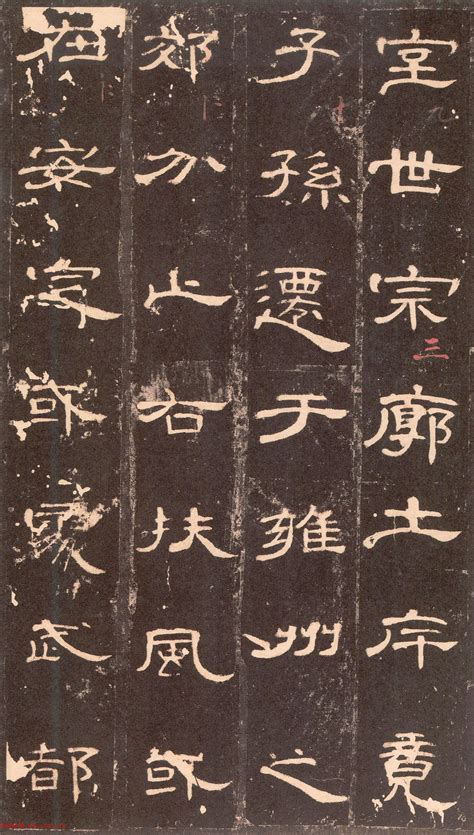 室世宗廓土斥竟
子孫遷于雍州之
郊分止右扶風或
在安定或處武都
三